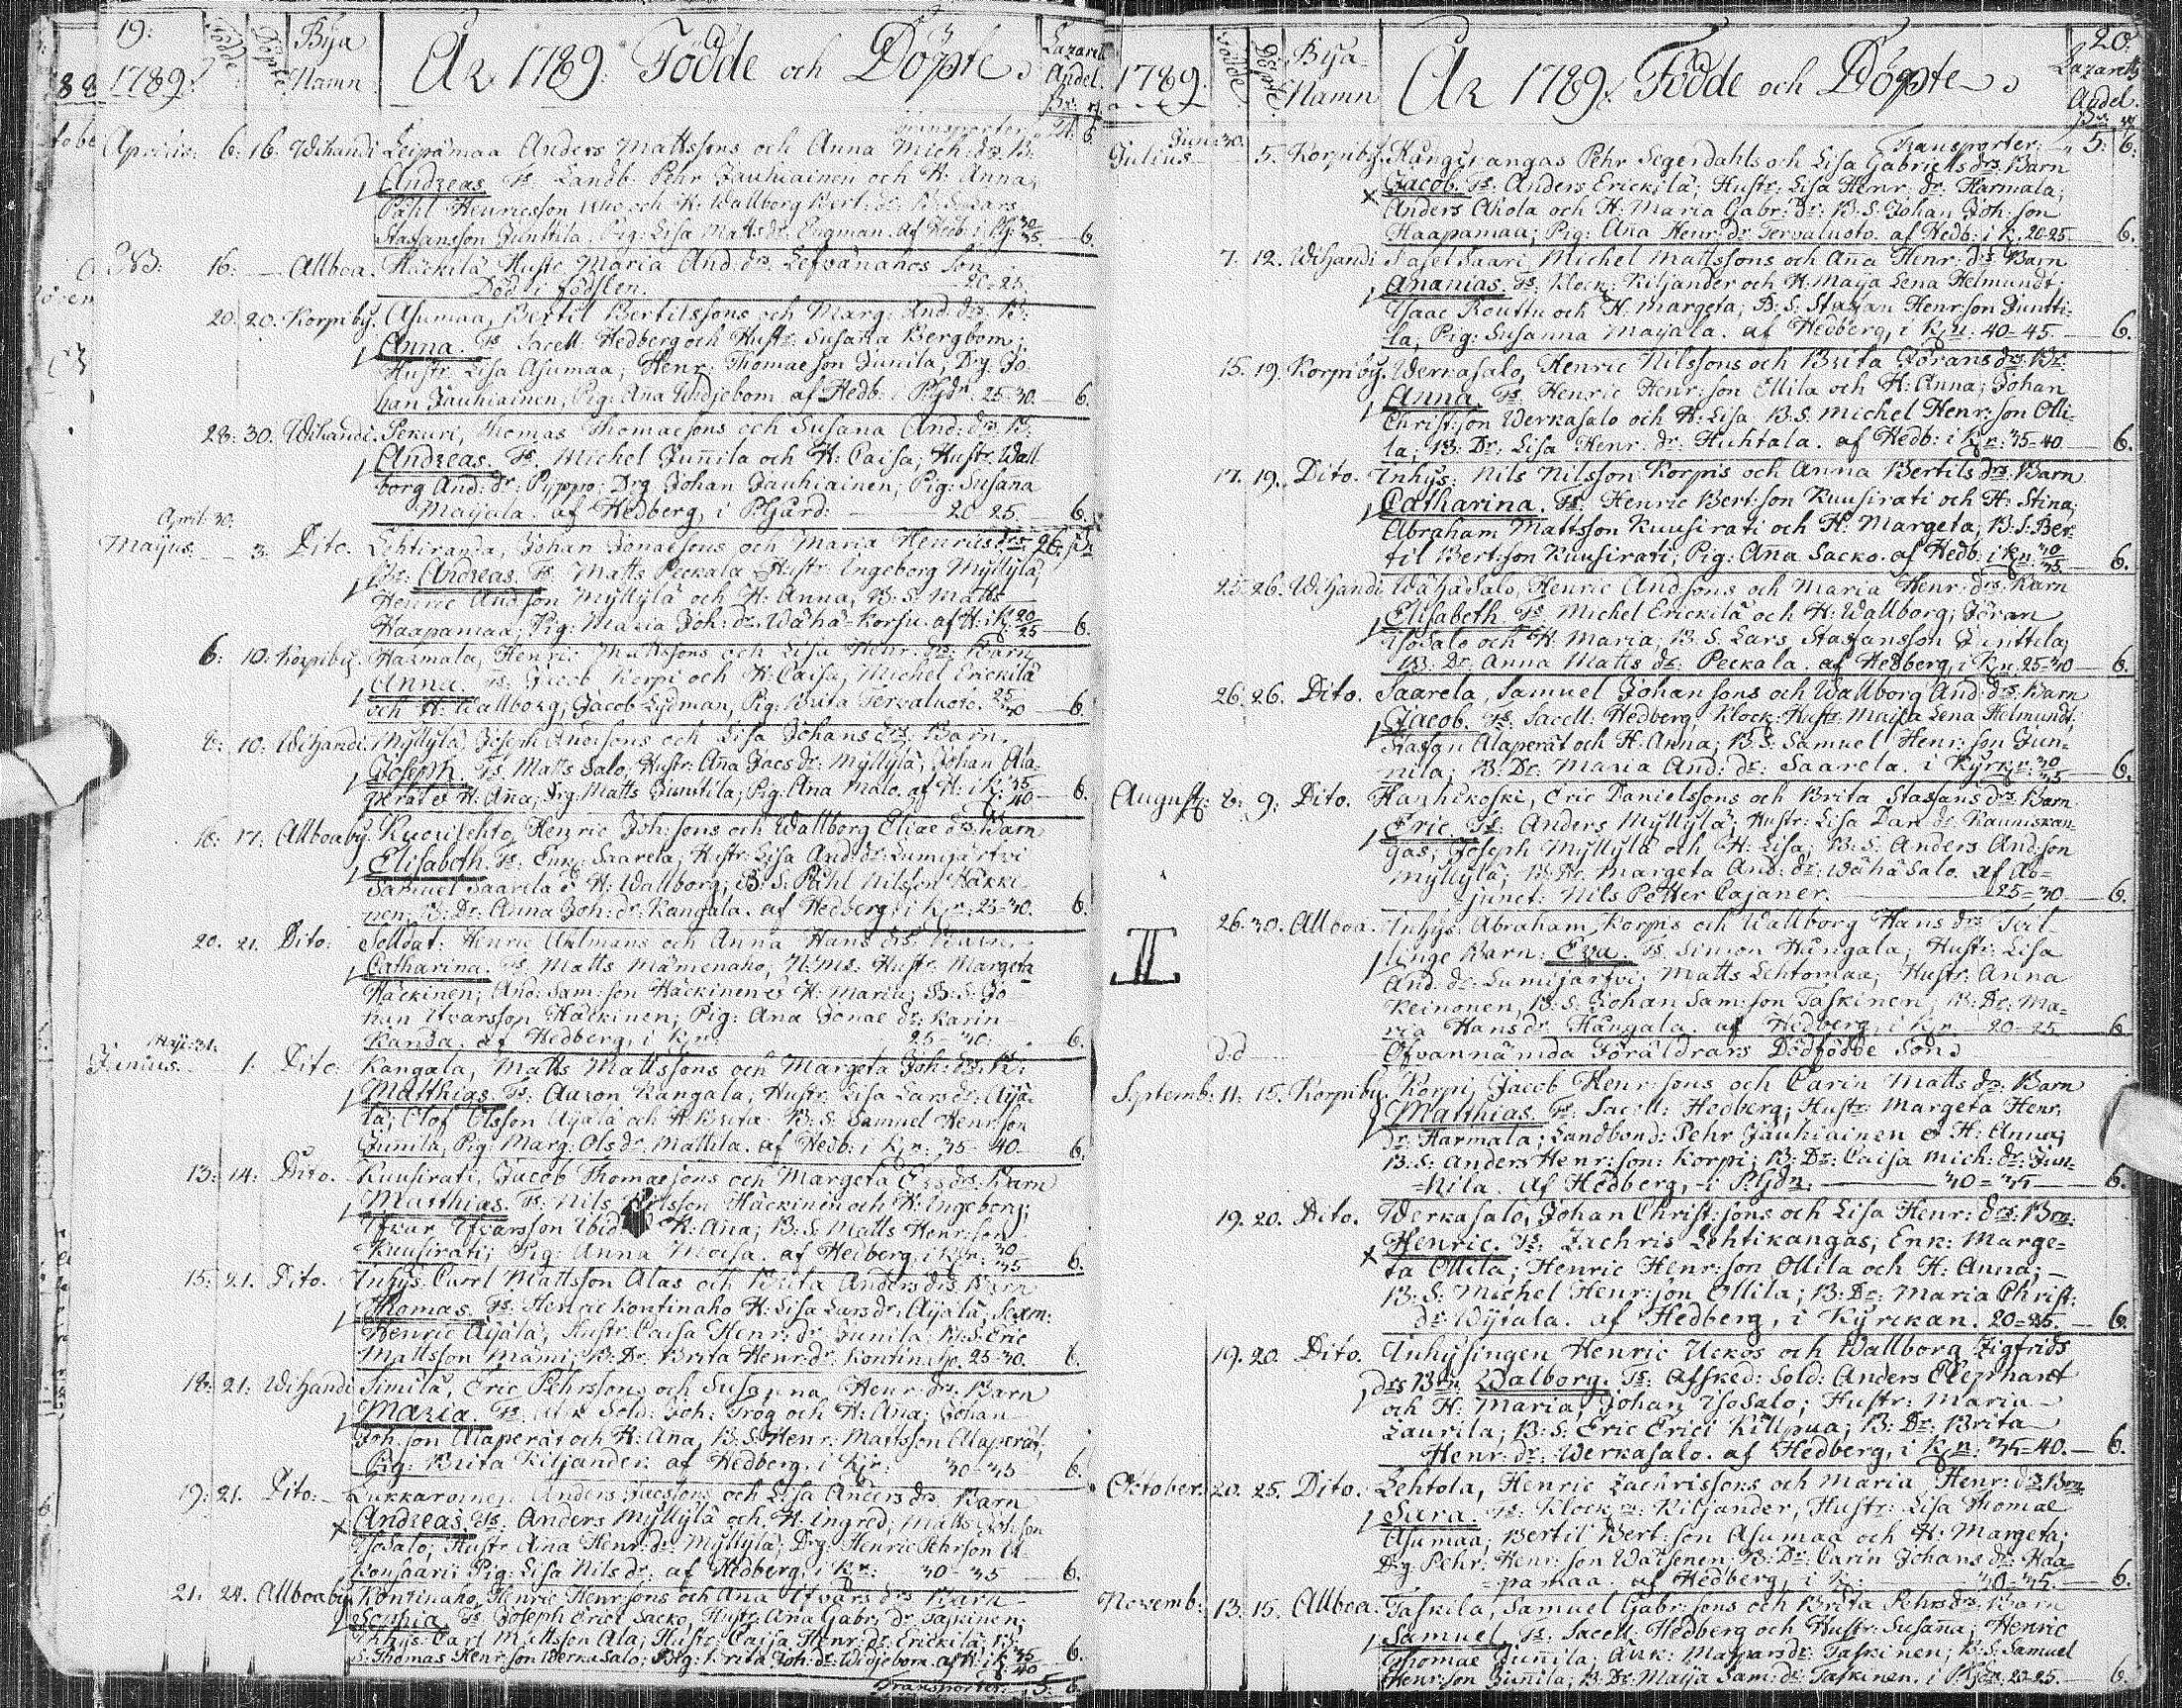 19:
1789.
Födde
Döpte
Bya
Namn
År 1789. Födde och Döpte.
Lazarett
Andel.
Transporter 24. 6.
Aprilis. 6. 16. Wihandi Leipämaa Anders Mattssons och Anna Mich: drs B:
Andreas. Fs. Landb. Pehr Jauhiainen och H: Anna;
Påhl Henricsson och H: Wallborg Bert: dr: B: S: Lars
Stafansson Junttila, Pig: Lisa Matts dr. Engman. af Hedb: i Pg: 30 35. 6.
16. Allboa. Häckilä Hustr Maria And: drs Lefvanandes Son
Död i födslen. 20-25.
20. 20. Korpiby. Asumaa, Bertil Bertilssons och Marg: And: drs B:
Anna. Fs Sacell Hedberg och Hustr: Susana Bergbom;
Hustr Lisa Asumaa; Henr: Thomaeson Junila, Drg: Jo-
han Jauhiainen, Pig: Aña Widjebom af Hedb: i P:gdn 25-30. 6.
28: 30. Wihandi. Pekuri, Thomas Thomaesons och Susana And: drs B:
Andreas. Fs. Michel Juñila och H: Caisa; Hustr. Wall-
borg And: dr: Pyppo; Drg Johan Jauhiainen; Pig: Susana
Maijala. af Hedberg, i P.gård: 20 25. 6.
April: 30.
Maijus. 3. Dito. Lehtiranta, Johan Jonaesons och Maria Henrics drs
Br: Andreas. Fs. Matts Peckala Hustr: Engeborg Myllylä;
Henric And:son Myllylä och H: Anna, B: S: Matts
Haapamaa; Pig: Maria Joh: dr. Wähä-Korju. af H: i K: 20 25 6.
6: 10: Korpiby. Harmala, Henric Mattssons och Lisa Henr: drs Barn
Anna. Fs. Jacob Korpi och H: Caisa, Michel Erickilä
och H: Wallborg; Jacob Lydman, Pig: Brita Tervaluoto. 25 30 6.
8: 10: Wihandi. Myllylä Joseph Andersons och Lisa Johans drs Barn.
Joseph. Fs. Matts Salo, Hustr: Aña Jacs dr: Myllylä, Johan Ala-
perät & H: Aña; Drg: Matts Junttila; Pig: Ana Malo. af H: i K: 35 40 6.
16: 17: Allboaby. Kuorilehto, Henric Joh:sons och Wallborg Eliae drs Barn
Elisabeth. Fs. Enk: Saarela, Hustr: Lisa And: dr: Lumijärfvi
Samuel Saarela & H: Wallborg; B: S. Påhl Nilsson Häkki-
nen; B: Dr: Anna Joh: dr: Kangala. af Hedberg, i K:n: 25-30. 6.
20. 21. Dito: Solldat: Henric Ahlmans och Anna Hans drs Barn.
Catharina. Fs. Matts Mämenaho; Hustr: Margeta
Häckinen; And: Sam: son Häckinen & H: Maria; B: S: Jo-
han Ifvarsson Häckinen; Pig: Ana Jonae dr: Karin-
Kanda. af Hedberg, i K:n. 25-30. 6.
Maji: 31.
Junius. 1. Dito: Kangala, Matts Mattssons och Margeta Joh: drs B:
Matthias. Fs: Aaron Kangala; Hustr: Lisa Lars dr: Äijä-
lä; Olof Olsson Äijälä och H: Brita. B: S: Samuel Henr:son
Junila, Pig: Marg: Ols dr: Mattila. af Hedb: i K:n: 35-40. 6.
13: 14: Dito. Kuusirati, Jacob Thomaesons och Margeta drs Barn
Matthias. Fs: Nils Nilsson Häckinen och H: Ingeborg;
Ifvar Ifvarsson Ibid: H: Aña; B: S: Matts Henr:son
Kuusirati; Pig: Anna Moisa. af Hedberg, i K:n: 30 35 6.
15: 21. Dito. Inhys. Carl Mattsson Alas och Brita Anders drs Barn
Thomas. Fs: Henric Kontinaho H: Lisa Lars dr: Äijälä, Sexm:
Henric Äijälä, Hustr: Caisa Henr: dr Junila B: S: Eric
Mattsson Mämi; B: Dr: Brita Henr: dr Kontinaho. 25-30. 6.
18: 21: Wihandi Similä, Eric Pehrssons och Susanna Henr: drs: Barn
Maria. Fs: Afsk Sold: Joh: Trog och H: Aña; Johan
Joh:son Alaperät och H: Ana, B: S: Henr: Mattsson Alaperät;
Pig: Brita Kiljander. af Hedberg. i K:r: 30-35 6.
19: 21. Dito: Lukkaroinen Anders Jacssons och Lisa Anders drs. Barn
Andreas. Fs: Anders Myllylä och H: Ingred; Matts Joh:son
Isosalo; Hustr Ana Henr: dr Myllylä; Drg: Henric Pehrson Ul-
konsaari; Pig: Lisa Nils dr: af Hedberg, i K:n: 30-35 6.
21. 24. Allboaby. Kontinaho, Henric Henr:sons och Ana Ifvars drs Barn
Sophia. Fs Joseph Erici Sacko, Hustr: Aña Gabr: dr Taskinen;
Inhys: Carl Mattsson Ala; Hustr: Caisa Henr: dr: Erickilä; B:
S: Thomas Henr:son Werkasalo; Pig: Brita Joh: dr: Widjebom. af H: i K: 35 40 6.
Transporter: 5: 6.
1789.
Födde
Döpte
Bya
Namn
År 1789. Födde och Döpte.
20.
Lazaretts
Andel.
Transporter. 5: 6:
Jun: 30.
Julius 5. Korpiby. Kangas Pehr Segerdahls och Lisa Gabriells drs Barn
Jacob. Fs: Anders Erickilä; Hustr: Lisa Henr: dr: Harmala;
Anders Ahola och H: Maria Gabr: Dr: B. S. Johan Joh:son
Haapamaa; Pig: Aña Henr: dr Tervaluoto. af Hedb: i K. 20-25. 6.
7. 12. Wihandi Saari, Michel Mattssons och Aña Henr: drs Barn
Ananias. Fs: Klock: Kiljander och H: Maija Lena Helmundt;
Isaac Routtu och H: Margeta; B: S. Stafan Henr:son Juntti-
la, Pig: Susanna Maijala. af Hedberg, i K:n: 40-45 6.
15. 19. Korpiby. Werkasalo, Henric Nilssons och Brita Görans drs Br:
Anna. Fs. Henric Henr: son Ollila och H: Anna; Johan
Christ:son Werkasalo och H: Lisa. B: S. Michel Henr:son Olli-
la; B: Dr: Lisa Henr: dr: Huhtala. af Hedb: i K:n: 35-40 6.
17. 19. Dito. Inhys. Nils Nilsson Korpis och Anna Bertils drs. Barn
Catharina. Fs: Henric Bert:son Kuusirati och H: Stina;
Abraham Mattsson Kuusirati och H: Margeta; B: S: Ber-
til Bert:son Kuusirati; Pig: Ana Sacko. af Hedb: i K:n: 30 35. 6.
25. 26. Wihandi Wähäsalo, Henric And:sons och Maria Henr: drs. Barn
Elisabeth. Fs. Michel Erickilä och H: Wallborg; Jöran
Isosalo och H: Maria, B: S. Lars Stafansson Junttila;
B: Dr: Anna Matts dr: Peckala. af Hedberg, i K:n. 25-30 6.
26. 26. Dito. Saarela, Samuel Johanssons och Wallborg And: drs. Barn
Jacob. Fs: Sacell: Hedberg, Klock: Hustr Maija Lena Helmundt;
Stafan Alaperät och H: Anna; B: S: Samuel Henr: son Jun-
nila; B: Dr: Maria And: dr: Saarela. i Kyrk:n: 30 35 6.
August: 8: 9: Dito. Hanhikoski, Eric Danielssons och Brita Stafans drs Barn
Eric. Fs: Anders Myllylä; Hustr: Lisa Dan: dr: Kauniskan-
gas; Joseph Myllylä och H: Lisa; B: S: Anders And:son
Myllylä; B: Dr. Margeta And: dr: Wähäsalo. af Ad-
junct: Nils Petter Cajaner. 25-30. 6.
26. 30. Allboa. Inhys: Abraham Korpis och Wallborg Hans drs Tvil-
linge Barn. Eva. Fs. Simon Hängala; Hustr: Lisa
And: dr: Lumijärfvi; Matts Lehtomaa; Hustr: Anna
Keinonen, B: S: Johan Sam:son Taskinen; B: Dr: Ma-
ria Hans dr. Hängala. af Hedberg, i K:n 20-25 6
II
d:d Ofvannämda Föräldrars Dödfödde Son.
Septemb: 11. 15. Korpiby Korpi, Jacob Henr: sons och Carin Matts drs. Barn
Matthias. Fs. Sacell: Hedberg; Hustr Margeta Henr:
dr: Harmala; Landbond: Pehr Jauhiainen & H: Anna;
B: S: Anders Henr: son: Korpi; B: Dr: Caisa Mich: dr: Jun-
=nila. af Hedberg, i P:gdn: 30=35 6.
19. 20. Dito. Werkasalo, Johan Christ:sons och Lisa Henr: drs: Brn:
Henric. Fs. Zachris Lehtikangas; Enk: Marge=
ta Ollila; Henric Henr: son Ollila och H: Anna;
B: S: Michel Henr:son Ollila; B: Dr: Maria Christ:
dr Wijtala. af Hedberg, i Kyrckan. 20=25. 6.
19. 20. Dito. Inhysingen Henric Uckos och Wallborg Zigfrids
drs Brn. Walborg. Fs: Afsked: Sold: Anders Elephant
och H. Maria; Johan Isosalo; Hustr: Maria
Laurila; B: S: Eric Erici Killpua; B: Dr: Brita
Henr: dr: Werkasalo. af Hedberg, i K:n: 35=40. 6.
Oktober. 20. 25. Dito. Lehtola, Henric Zachrissons och Maria Henr: drs Brn
Sara. Fs: Klock:n: Kiljander, Hustr: Lisa Thomae
Asumaa; Bertil Bert:son Asumaa och H: Margeta;
Drg Pehr: Henr: son Wäisenen; B: Dr: Carin Johans dr: Haa=
=pamaa. af Hedberg, i K: 30=35. 6.
Novemb: 13. 15. Allboa. Taskila, Samuel Gabr:sons och Brita Pehrs drs. Barn
Samuel. Fs: Sacell Hedberg och Hustr: Susaña; Henric
Thomae Juñila; Enk: Marg: Lars dr: Taskinen; B: S: Samuel
Henr:son Juñila; B: Dr: Maija Sam: dr: Taskinen. i P:gdn. 20-25. 6.